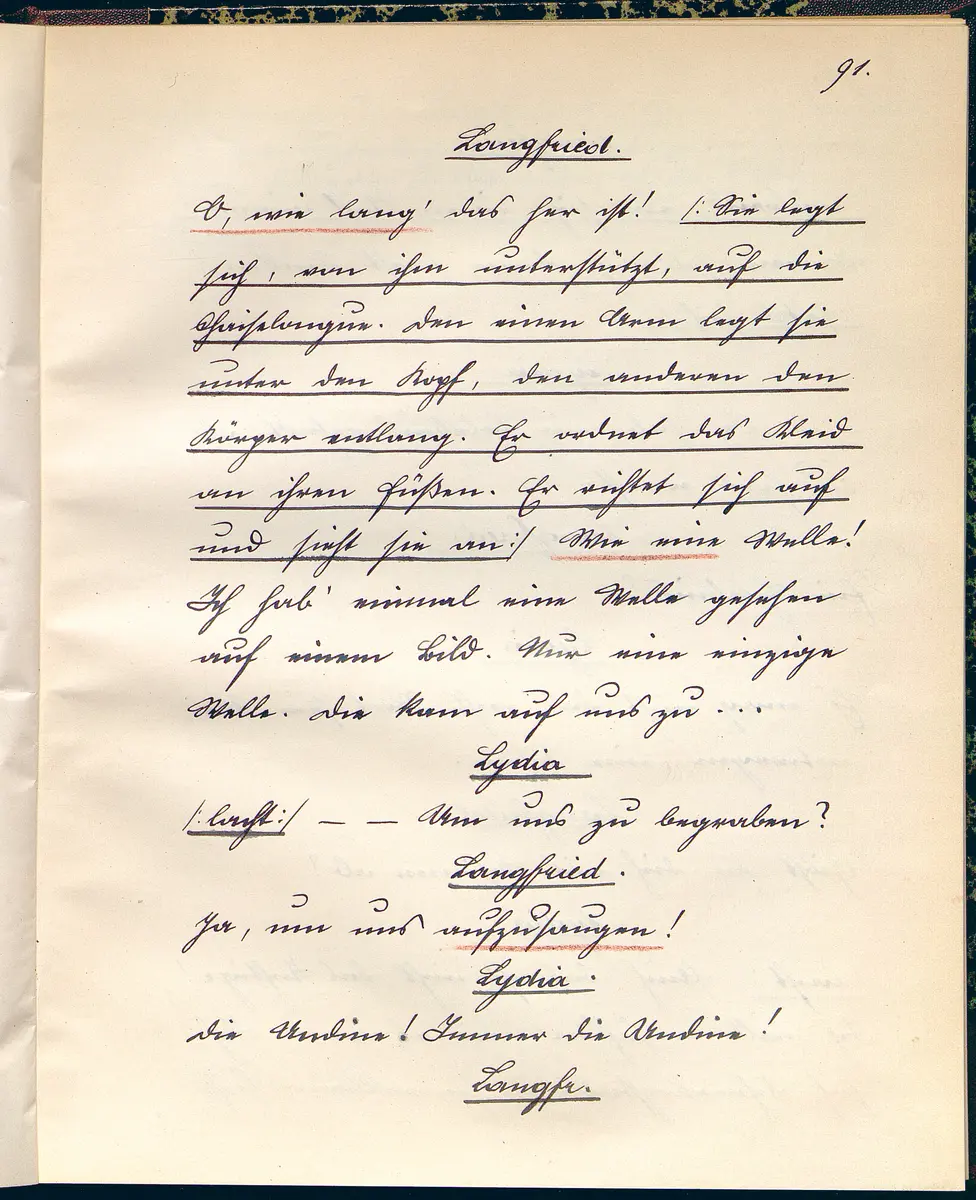 91.
Langfried.
O, wie lang' das her ist! /: Sie legt
sich, von ihm unterstützt, auf die
Chaiselongue. Den einen Arm legt sie
unter den Kopf, den anderen den
Körper entlang. Er ordnet das Kleid
an ihren Füßen. Er richtet sich auf
und sieht sie an :/ Wie eine Welle!
Ich hab' einmal eine Welle gesehen
auf einem Bild. Nur eine einzige
Welle. Die kam auf uns zu ...
Lydia
/: lacht :/ – – Um uns zu begraben?
Langfried.
Ja, um uns aufzusaugen!
Lydia.
Die Undine! Immer die Undine!
Langfr.